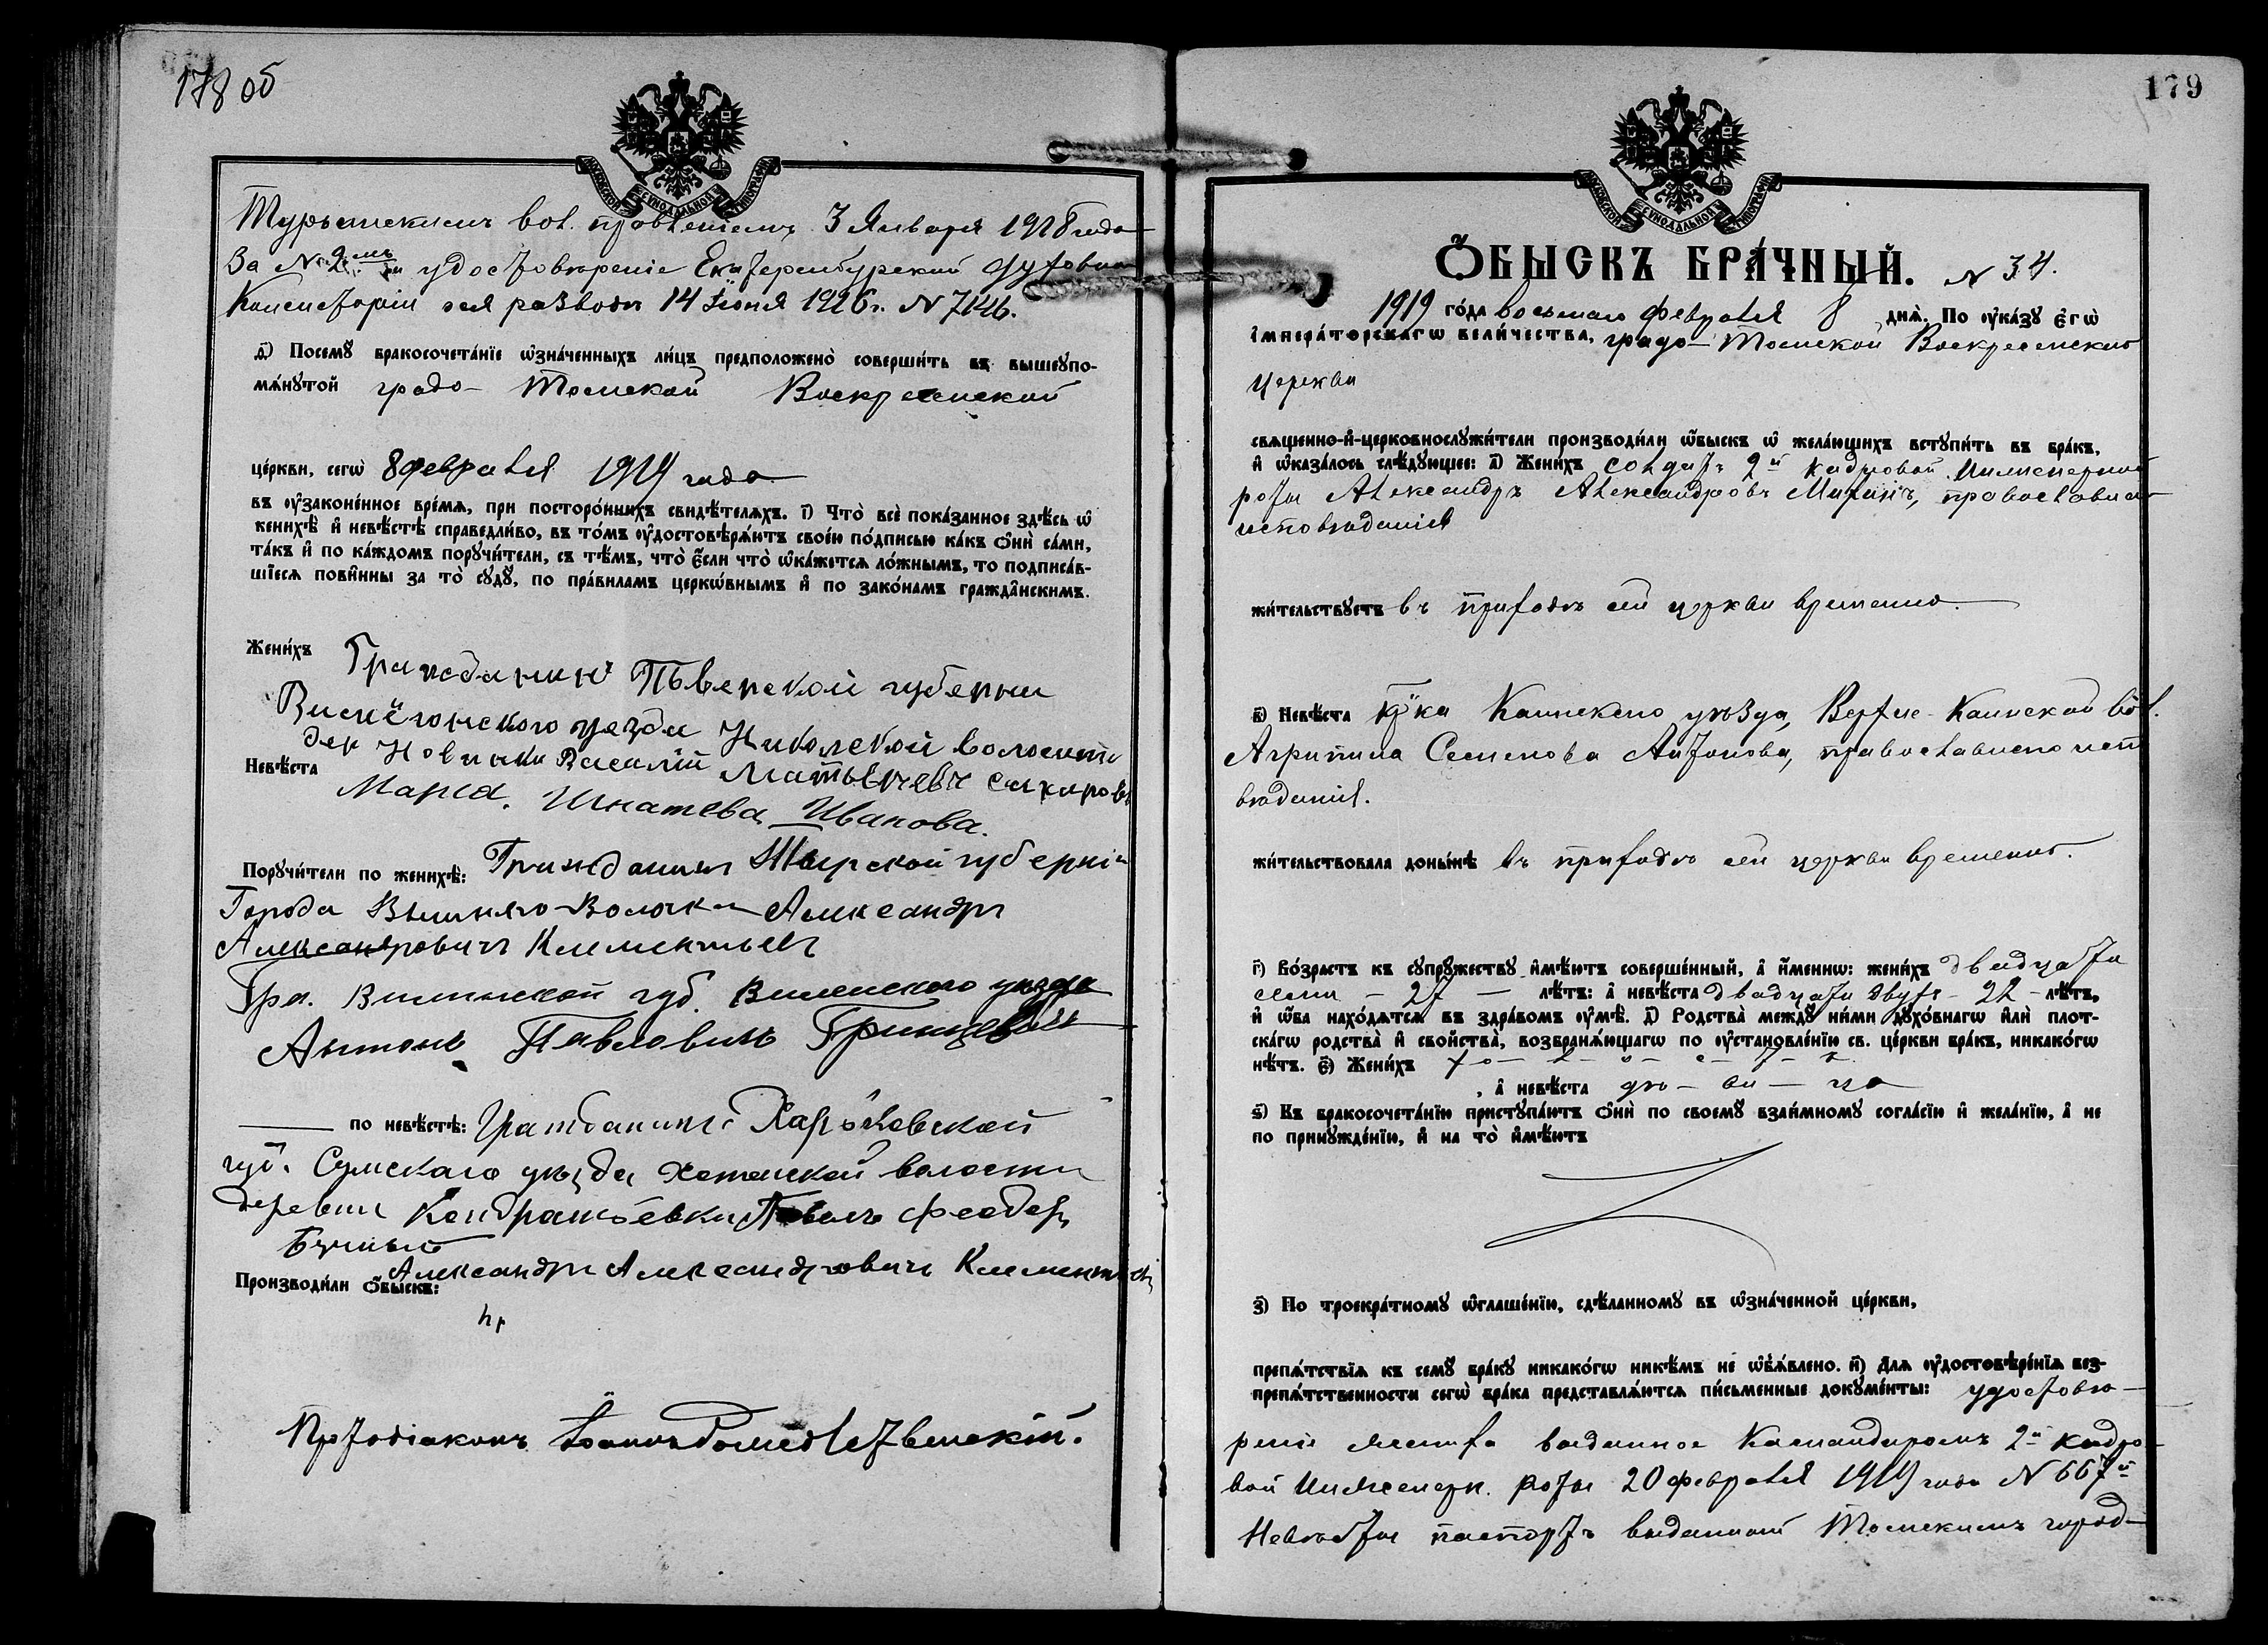 178 об
МОСКОВСКОЙ СѴНОДАЛЬНОЙ ТИПОГРАФІИ
Турьинскимъ вол. правленіемъ 3 Января 1918 года
За № 2мъ и удостовѣреніе Екатеринбургской Духовной
Консисторіи о разводѣ 14 Іюня 1916 г. № 7146.
д҃) Посемꙋ̀ бракосочета́нїе ѡ҆зна́ченныхъ ли́цъ предположено̀ соверши́ть въ вышеꙋпо-
мѧ́нꙋтой градо- Томской Воскресенской
це́ркви, сегѡ̀ 8 февраля 1919 года
въ ᲂу҆законе́нное вре́мѧ, при посторо́ннихъ свидѣ́телѧхъ. і҃) Что̀ всѐ пока́занное здѣ́сь ѡ҆
женихѣ̀ и҆ невѣ́стѣ справедли́во, въ то́мъ ᲂу҆достовѣрѧ́ютъ свое́ю по́дписью ка́къ ѻ҆нѝ са́ми,
та́къ и҆ по ка́ждомъ порꙋчи́тели, съ тѣ́мъ, что̀ є҆́сли что̀ ѡ҆ка́жетсѧ ло́жнымъ, то подписа́в-
шїесѧ пови́нны за то̀ сꙋдꙋ̀, по пра́виламъ церкѡ́внымъ и҆ по зако́намъ гражда́нскимъ.
Жени́хъ Гражданинъ Тверской губерни
Висиёгонского уезда Никольской волости
дер Новинки Василий Матвеичевъ Сахаровъ
Невѣ́ста Марія. Игнатева Иванова.
Порꙋчи́тели по женихѣ̀: Гражданинъ Тверской губерніи
Города Вышняго-Волочка Александръ
Александровичъ Клементьевъ
Гра. Виленской губ. Виленского уезда
Антонъ Павловичъ Гринцевичъ
по невѣ́стѣ: Гражданинъ Харьковской
губ. Сумскаго уѣзда Хотенской волости
деревни Кондратьевки Павелъ Феодор
Александръ Александровичъ Клементьевъ
Производи́ли ѻ҆́быскъ:
Протодіаконъ Іоаннъ
179
МОСКОВСКОЙ СѴНОДАЛЬНОЙ ТИПОГРАФІИ
Ѻ҆́БЫСКЪ БРА́ЧНЫЙ. № 34.
1919 го́да восьмаго февраля 8 днѧ̀. По ᲂу҆ка́зꙋ є҆гѡ̀
і҆мпера́торскагѡ вели́чества, градо-Томской Воскресенской
церкви
свѧще́нно-и҆-церковнослꙋжи́тели производи́ли ѻ҆́быскъ ѡ҆ жела́ющихъ встꙋпи́ть въ бра́къ,
и҆ ѡ҆каза́лось слѣ́дꙋющее: а҃) Жени́хъ солдатъ 2й кадровой Инженерной
роты Александръ Александровъ православнаго
исповѣданія
жи́тельствꙋетъ въ приходѣ сей церкви временно.
в҃) Невѣ́ста кр-ка Каинскаго уѣзда, Верхне-Каинской вол.
Агрипина Семенова Антонова, православнаго испо
вѣданія.
жи́тельствовала доны́нѣ въ приходѣ сей церкви временно.
г҃) Во́зрастъ къ сꙋпрꙋ́жествꙋ и҆мѣ́ютъ соверше́нный, а҆ и҆́менно: жени́хъ двадцати
семи - 27 - лѣ́тъ: а҆ невѣ́ста двадцати двухъ - 22 - лѣ́тъ,
и҆ ѻ҆́ба нахо́дѧтсѧ въ здра́вомъ ᲂу҆мѣ̀. д҃) Родства̀ междꙋ̀ ни́ми дꙋхо́внагѡ и҆лѝ плот-
ска́гѡ родства̀ и҆ сво́йства̀, возбранѧ́ющагѡ по ᲂу҆становле́нїю св. це́ркви бра́къ, никако́гѡ
нѣ́тъ. є҃) Жени́хъ хо - л - о - с - т - ъ
, а҆ невѣ́ста дѣ - ви - ца
ѕ҃) Къ бракосочета́нїю пристꙋпа́ютъ ѻ҆нѝ по своемꙋ̀ взаи́мномꙋ согла́сїю и҆ жела́нїю, а҆ не
по принꙋжде́нїю, и҆ на то̀ и҆мѣ́ютъ
з҃) По троекра́тномꙋ ѡ҆глаше́нїю, сдѣ́ланномꙋ въ ѡ҆зна́ченной це́ркви,
препѧ́тствїѧ къ семꙋ̀ бра́кꙋ никако́гѡ никѣ́мъ не ѡ҆б̾ѧ́влено. и҃) Длѧ ᲂу҆достовѣре́нїѧ без-
препѧ́тственности сегѡ̀ бра́ка представлѧ́ютсѧ пи́сьменные докꙋме́нты: удостовѣ-
реніе жениха выданное Командиромъ 2й кадро-
вой Инженерн. роты 20 февраля 1919 года № 667й
Невѣсты паспортъ выданный Томскимъ город-